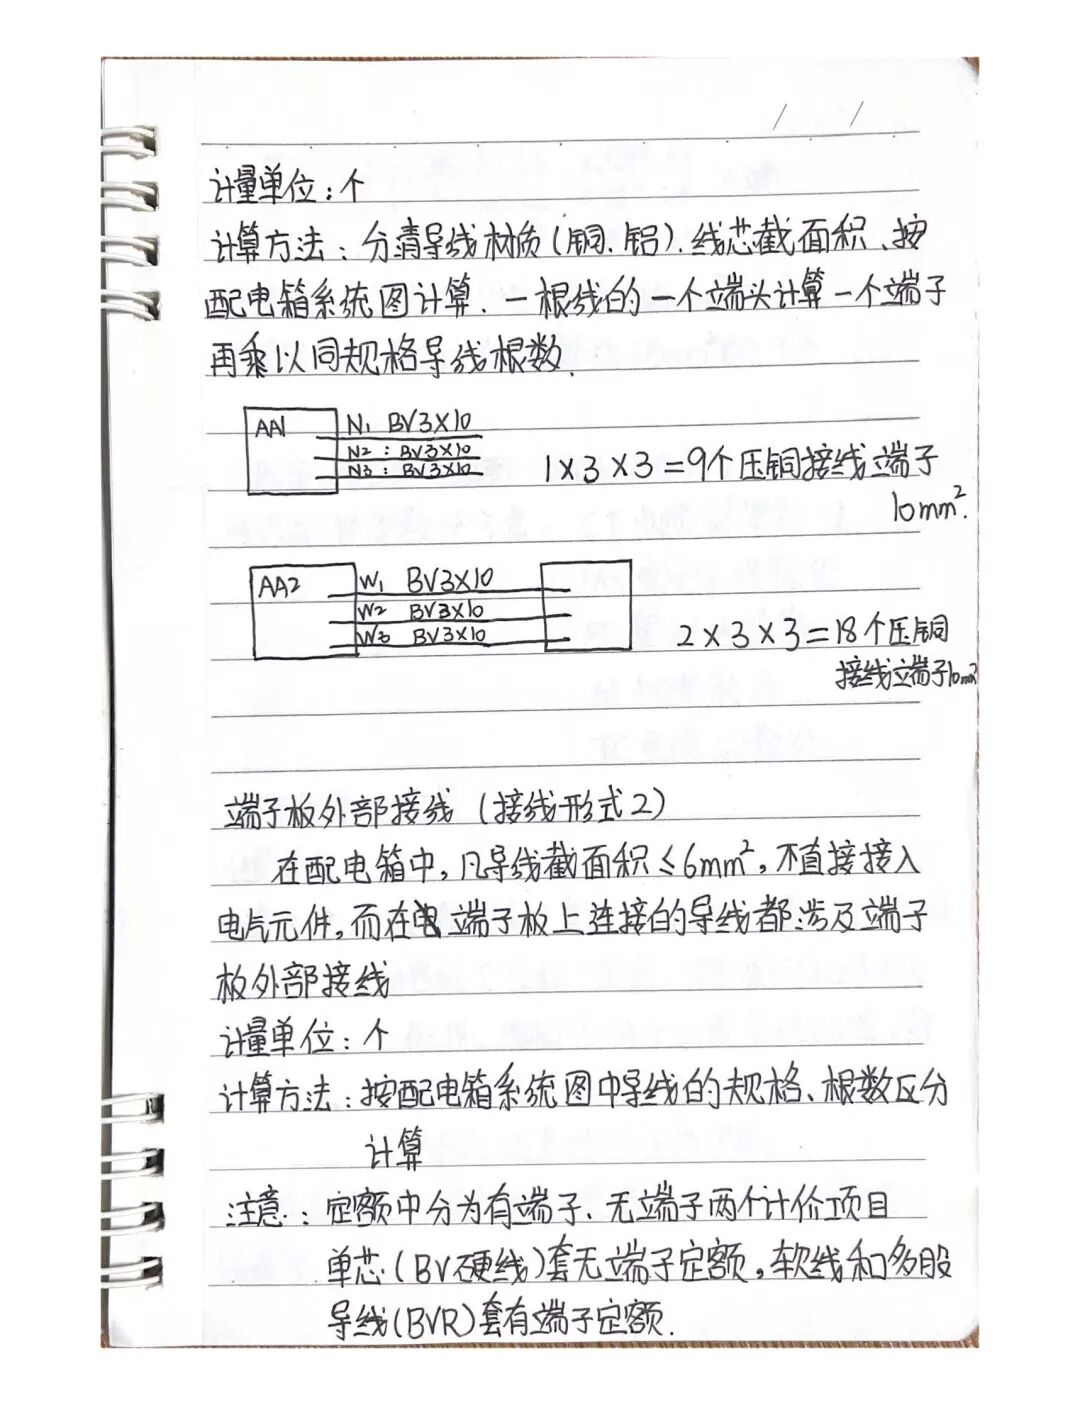 计量单位：个
计算方法：分清导线材质(铜、铝).线芯截面积、按
配电箱系统图计算.一根线的一个端头计算一个端子
再乘以同规格导线根数.
AA1 N1 BV3×10
N2：BV3×10
N3：BV3×10
1×3×3=9个压铜接线端子
10mm².
AA2 W1 BV3×10
W2 BV3×10
W3 BV3×10
2×3×3=18个压铜
接线端子10mm²
端子板外部接线(接线形式2)
在配电箱中,凡导线截面积≤6mm²,不直接接入
电气元件,而在端子板上连接的导线都涉及端子
板外部接线
计量单位：个
计算方法：按配电箱系统图中导线的规格、根数区分
计算
注意：定额中分为有端子、无端子两个计价项目
单芯(BV硬线)套无端子定额,软线和多股
导线(BVR)套有端子定额.